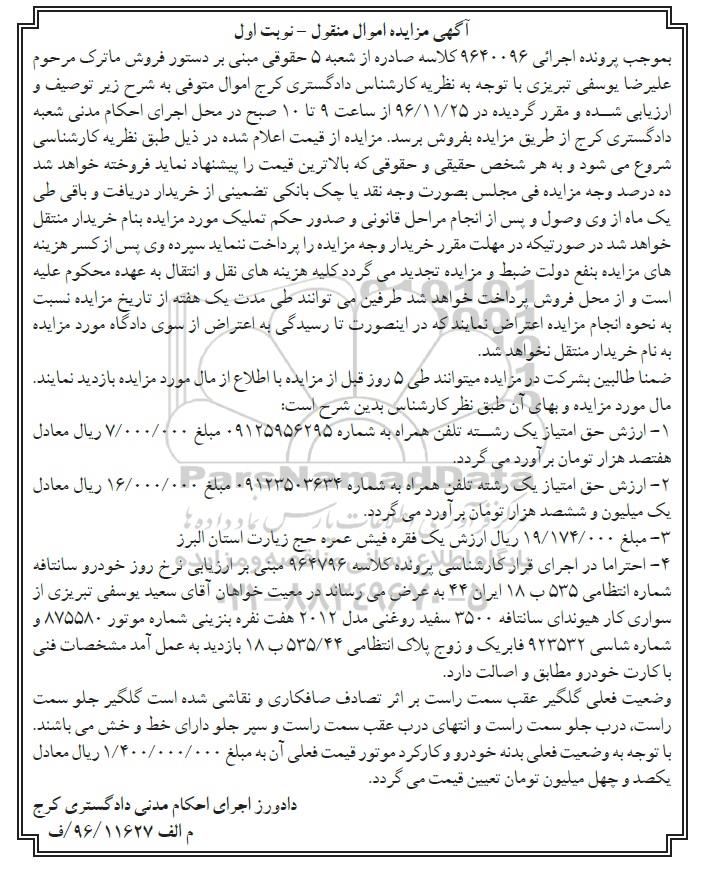 آگهی مزایده اموال منقول - نوبت اول
بموجب پرونده اجرائی ۹۶۴۰۰۹۶ کلاسه صادره از شعبه ۵ حقوقی مبنی بر دستور فروش ماترک مرحوم
علیرضا یوسفی تبریزی با توجه به نظریه کارشناس دادگستری کرج اموال متوفی به شرح زیر توصیف و
ارزیابی شده و مقرر گردیده در ۹۶/۱۱/۲۵ از ساعت ۹ تا ۱۰ صبح در محل اجرای احکام مدنی شعبه
دادگستری کرج از طریق مزایده بفروش برسد. مزایده از قیمت اعلام شده در ذیل طبق نظریه کارشناسی
شروع می شود و به هر شخص حقیقی و حقوقی که بالاترین قیمت را پیشنهاد نماید فروخته خواهد شد
ده درصد وجه مزایده فی مجلس بصورت وجه نقد یا چک بانکی تضمینی از خریدار دریافت و باقی طی
یک ماه از وی وصول و پس از انجام مراحل قانونی و صدور حکم تملیک مورد مزایده بنام خریدار منتقل
خواهد شد در صورتیکه در مهلت مقرر خریدار وجه مزایده را پرداخت ننماید سپرده وی پس از کسر هزینه
های مزایده بنفع دولت ضبط و مزایده تجدید می گردد کلیه هزینه های نقل و انتقال به عهده محکوم علیه
است و از محل فروش پرداخت خواهد شد طرفین می توانند طی مدت یک هفته از تاریخ مزایده نسبت
به نحوه انجام مزایده اعتراض نمایند که در اینصورت تا رسیدگی به اعتراض از سوی دادگاه مورد مزایده
به نام خریدار منتقل نخواهد شد.
ضمنا طالبین بشرکت در مزایده میتوانند طی ۵ روز قبل از مزایده با اطلاع از مال مورد مزایده بازدید نمایند.
مال مورد مزایده و بهای آن طبق نظر کارشناس بدین شرح است:
۱- ارزش حق امتیاز یک رشته تلفن همراه به شماره ۰۹۱۲۵۹۵۶۲۹۵ مبلغ ۷/۰۰۰/۰۰۰ ریال معادل
هفتصد هزار تومان برآورد می گردد.
ParsNamadData
۲- ارزش حق امتیاز یک رشته تلفن همراه به شماره ۰۹۱۲۳۵۰۳۶۳۴ مبلغ ۱۶/۰۰۰/۰۰۰ ریال معادل
یک میلیون و ششصد هزار تومان برآورد می گردد.
۳- مبلغ ۱۹/۱۷۴/۰۰۰ ریال ارزش یک فقره فیش عمره حج زیارت استان البرز
۴- احتراما در اجرای قرار کارشناسی پرونده کلاسه ۹۶۴۷۹۶ مبنی بر ارزیابی نرخ روز خودرو سانتافه
شماره انتظامی ۵۳۵ ب ۱۸ ایران ۴۴ به عرض می رساند در معیت خواهان آقای سعید یوسفی تبریزی از
۰۲۱-۸۸۳۴۹۶۷۰-۵
سواری کار هیوندای سانتافه ۳۵۰۰ سفید روغنی مدل ۲۰۱۲ هفت نفره بنزینی شماره موتور ۸۷۵۵۸۰ و
شماره شاسی ۹۲۳۵۳۲ فابریک و زوج پلاک انتظامی ۵۳۵/۴۴ ب ۱۸ بازدید به عمل آمد مشخصات فنی
با کارت خودرو مطابق و اصالت دارد.
وضعیت فعلی گلگیر عقب سمت راست بر اثر تصادف صافکاری و نقاشی شده است گلگیر جلو سمت
راست، درب جلو سمت راست و انتهای درب عقب سمت راست و سپر جلو دارای خط و خش می باشند.
با توجه به وضعیت فعلی بدنه خودرو و کارکرد موتور قیمت فعلی آن به مبلغ ۱/۴۰۰/۰۰۰/۰۰۰ ریال معادل
یکصد و چهل میلیون تومان تعیین قیمت می گردد.
دادورز اجرای احکام مدنی دادگستری کرج
م الف ۹۶/۱۱۶۲۷/ف